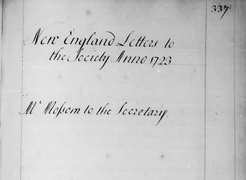 337
New England Letters to
the Society Anno 1723
Mr Mossom to the Secretary